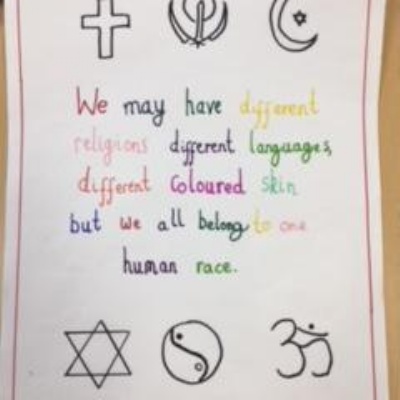 We may have different
religions different languages,
different Coloured skin
but we all belong to one
human race.